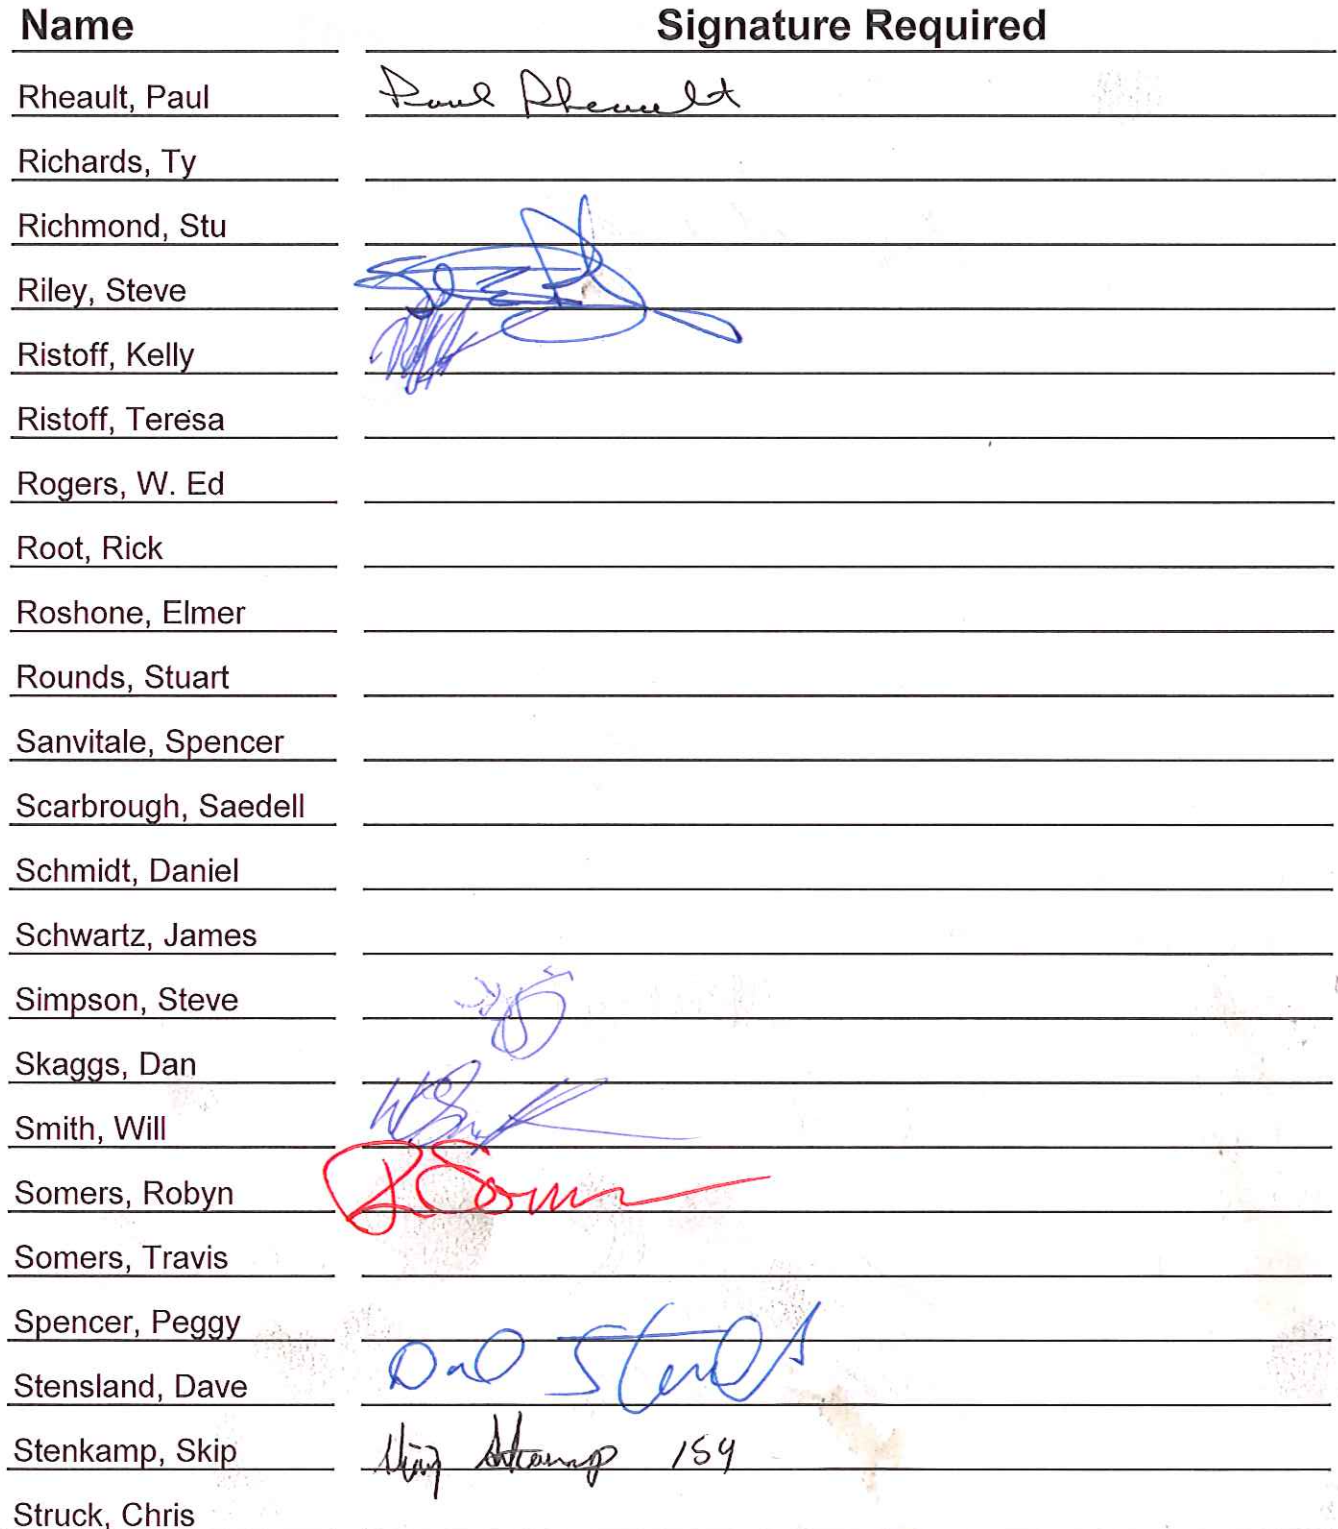 Name Signature Required
Rheault, Paul Paul Rheault
Richards, Ty
Richmond, Stu
Riley, Steve
Ristoff, Kelly
Ristoff, Teresa
Rogers, W. Ed
Root, Rick
Roshone, Elmer
Rounds, Stuart
Sanvitale, Spencer
Scarbrough, Saedell
Schmidt, Daniel
Schwartz, James
Simpson, Steve
Skaggs, Dan
Smith, Will
Somers, Robyn
Somers, Travis
Spencer, Peggy
Stensland, Dave
Stenkamp, Skip 154
Struck, Chris